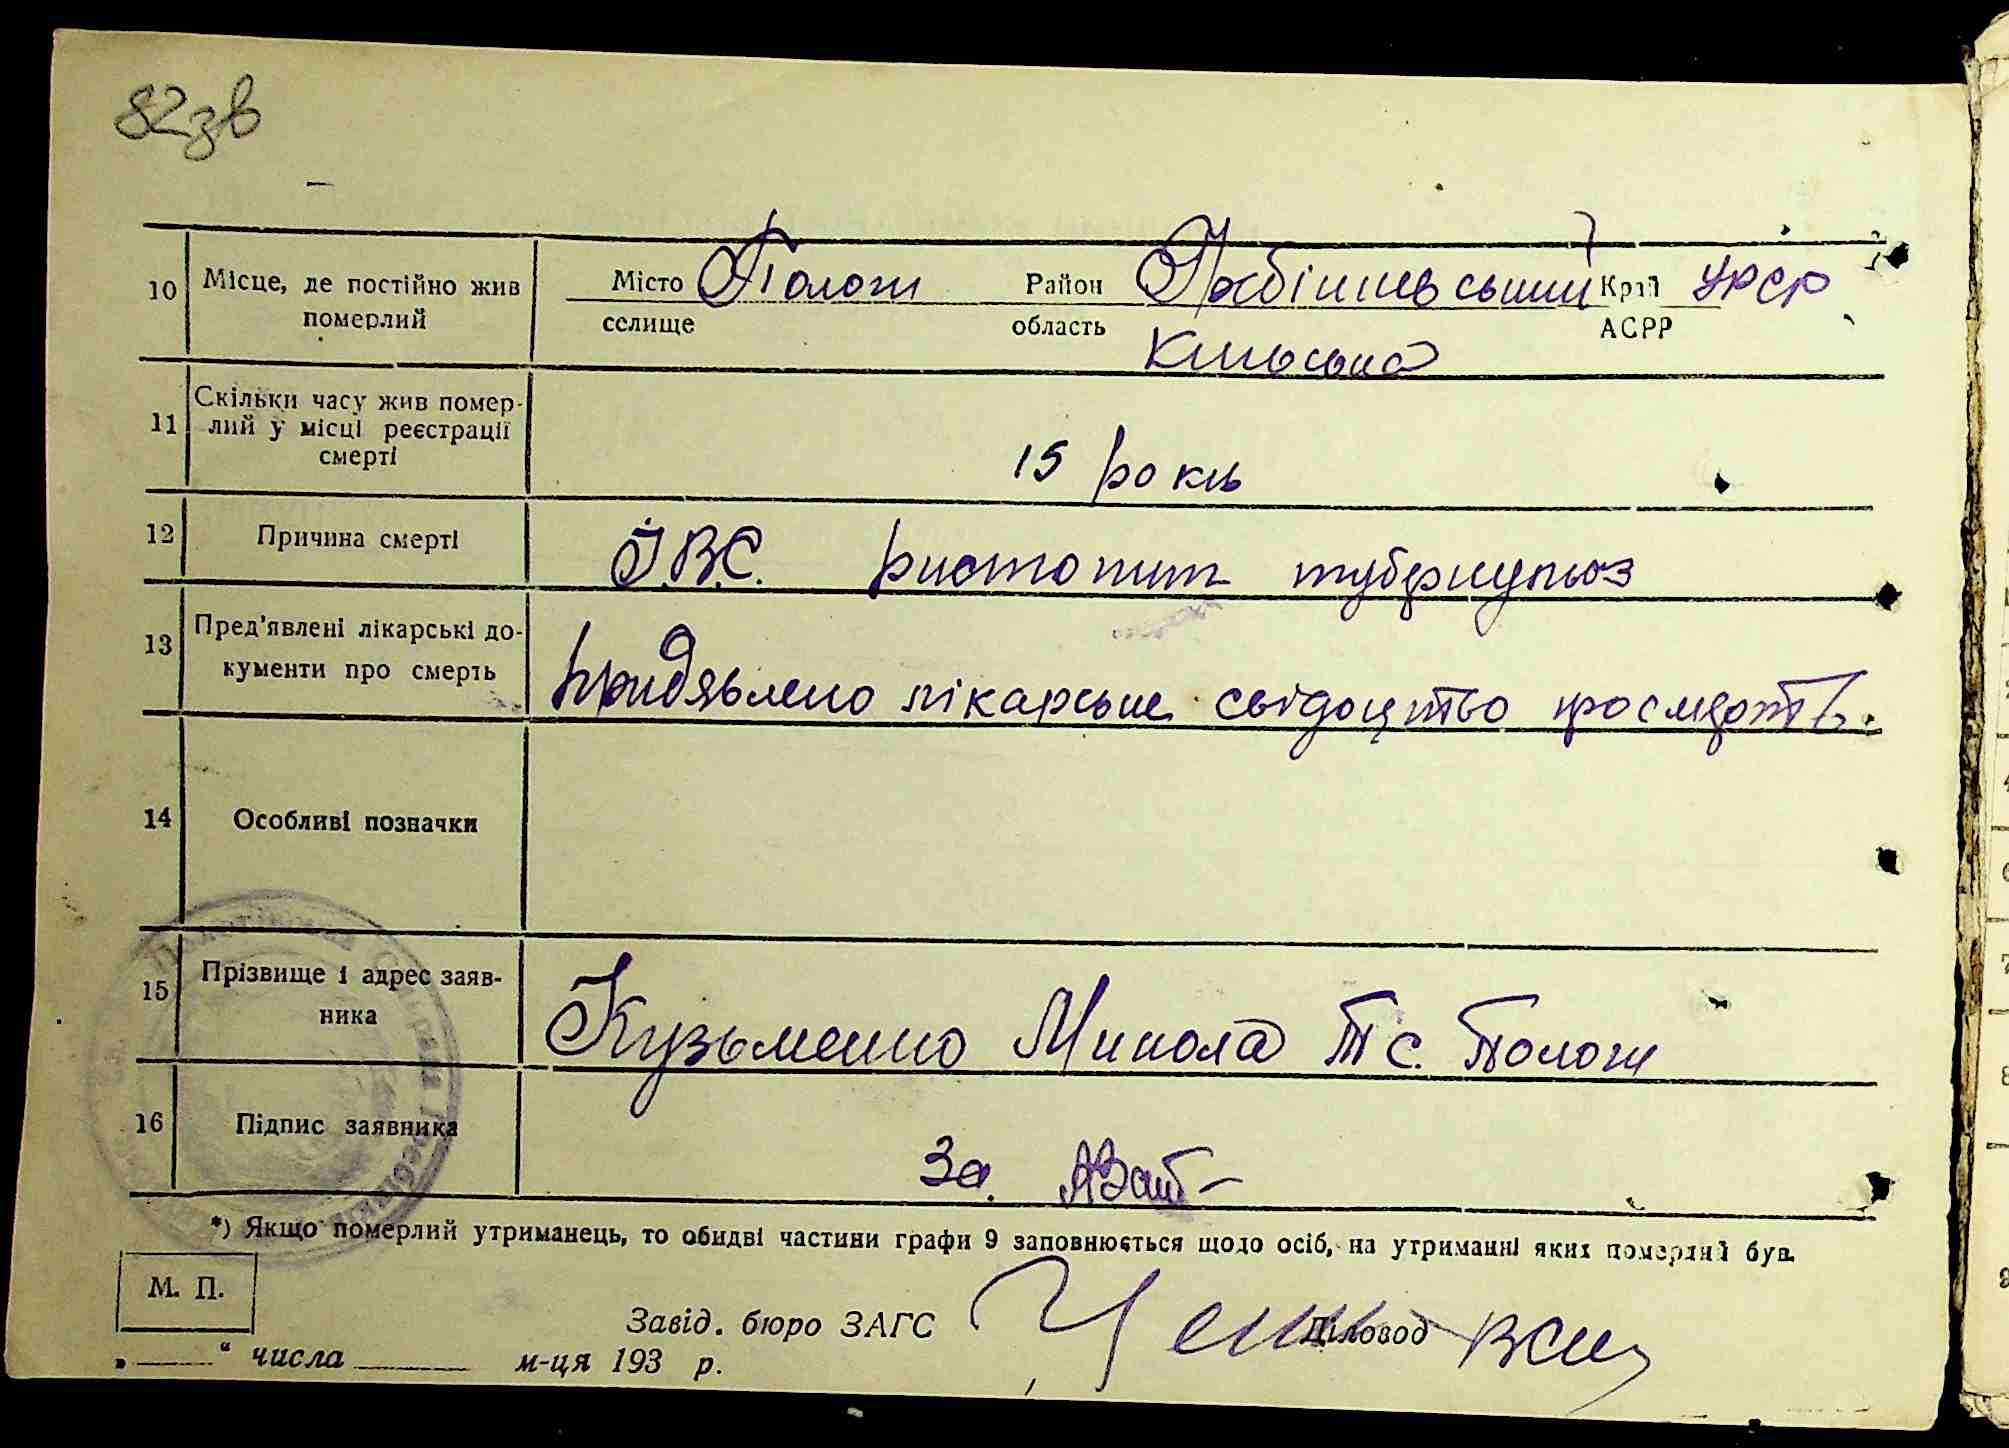 82зв
10 Місце, де постійно жив Місто Пологи Район Гребінківський Край УРСР
померлий селище область АСРР
Київська
Скільки часу жив помер-
11 лий у місці реєстрації
смерті
15 роки
12 Причина смерті Т.В.С. туберкульоз
13 Пред'явлені лікарські до-
кументи про смерть
придявлено лікарське свідоцтво про смерть.
14 Особливі позначки
15 Прізвище і адрес заяв-
ника
Кузьменко Микола Т с. Пологи
16 Підпис заявника
За.
*) Якщо померлий утриманець, то обидві частини графи 9 заповнюється щодо осіб, на утриманні яких померлий був.
М. П.
Завід. бюро ЗАГС Діловод
„ “ числа м-ця 193 р.